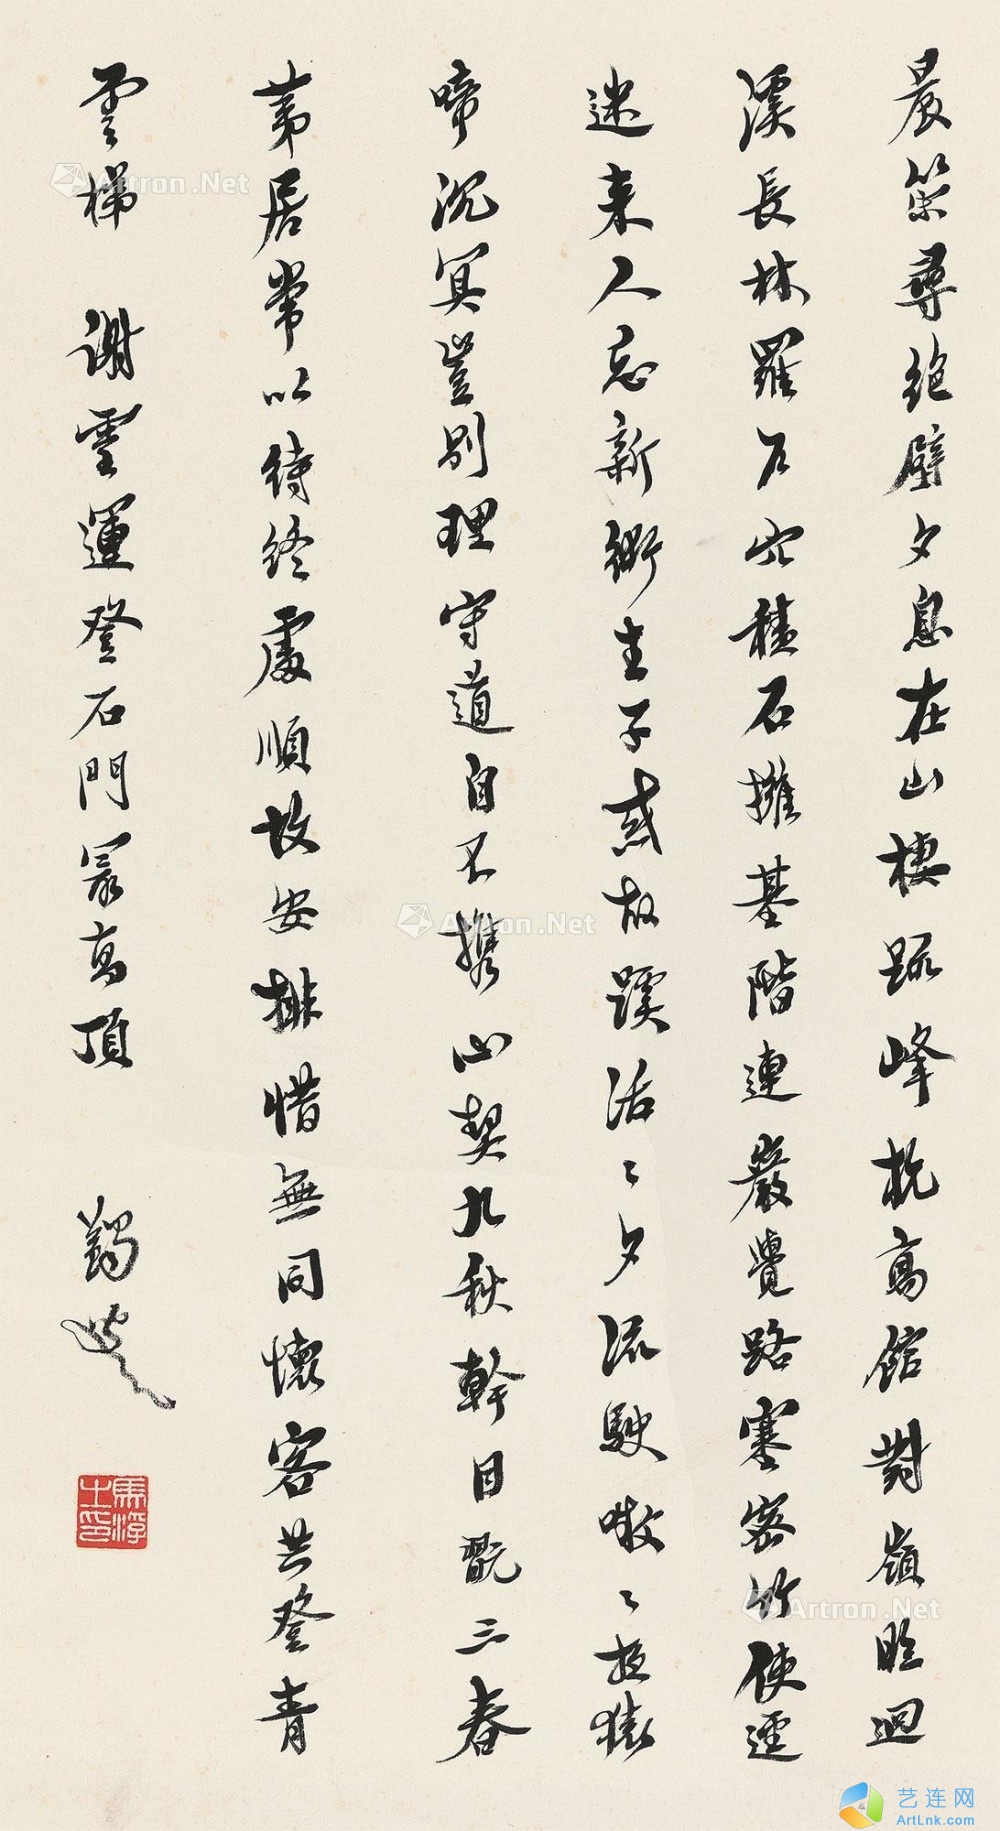 晨策尋絶壁夕息在山棲踈峰抗高館對嶺臨迴
溪長林羅户穴積石擁基階連巖覺路塞密竹使逕
迷来人忘新術去子惑故蹊活〻夕流駛噭〻夜猿
啼沉冥豈别理守道自不攜心契九秋幹日翫三春
荑居常以待終處順故安排惜無同懷客共登青
雲梯 謝靈運登石門最高頂 蠲叟
馬浮之印
Artron.Net
Artron.Net
Artron.Net
艺连网
ArtLnk.com